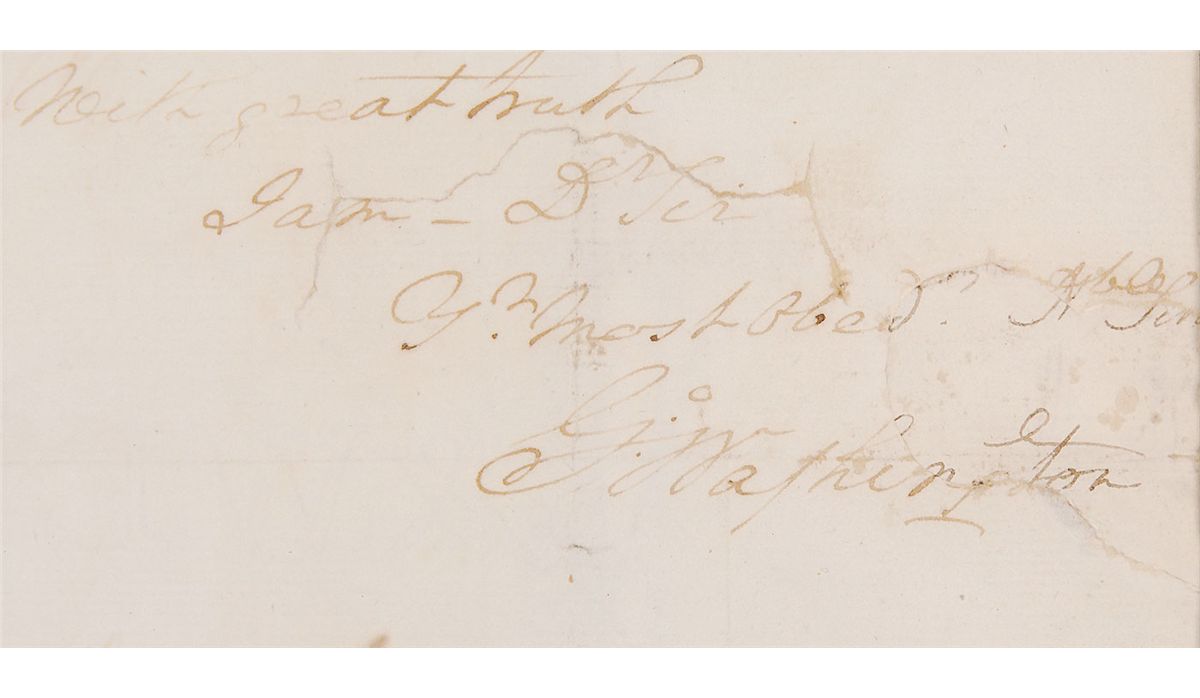 With great truth
I am – Dr Sir
Yr. Most Obed. Hble
G: Washington